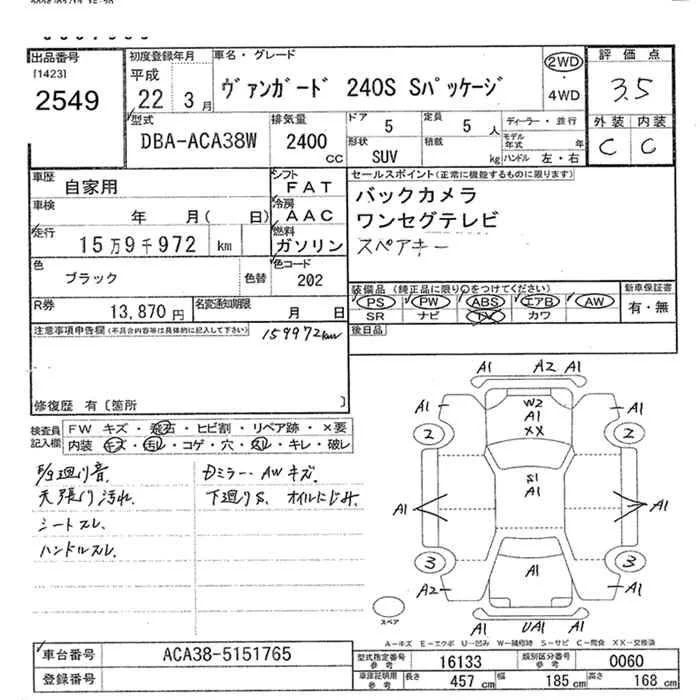 出品番号 初度登録年月 車名・グレード 評価点
[1423] 平成 22 3月 ヴァンガード 240S Sパッケージ 2WD ・ 4WD 3.5
2549
型式 排気量 ドア 5 定員 5 人 ディーラー・並行 外装 内装
DBA-ACA38W 2400 cc 形状 SUV 積載 kg モデル年式 年 C C
ハンドル 左・右
車歴 自家用 シフト FAT セールスポイント(正常に機能するものに限ります)
車検 年 月( 日) 冷房 AAC バックカメラ
走行 15万9千972 km 燃料 ガソリン ワンセグテレビ
スペアキー
色 ブラック 色替 色コード 202
装備品 (純正品に限り○をつけてください) 新車保証書
PS PW ABS エアB AW 有・無
SR ナビ TV カワ
R券 13,870円 名変通知期限 月 日
後日品
注意事項申告欄(不具合内容等は具体的に記入して下さい) 159972km
修復歴 有〔箇所 〕
検査員記入欄 FW キズ・飛石・ヒビ割・リペア跡・×要
内装 キズ・汚レ・コゲ・穴・スレ・キレ・破レ
F/g廻り音 Dミラー・AWキズ
天張り汚れ 下廻りS、オイルにじみ
シートスレ
ハンドルスレ
A1 A2 A1
A1 W2 A1
A1
XX
2 2
S1
A1
A1 A1
3 3
A1
A2 A1
A1 UA1 A1
スペア
A-キズ E-エクボ U-凹み W-補修跡 S-サビ C-腐食 XX-交換済
車台番号 ACA38-5151765 型式指定番号 参考 16133 類別区分番号 参考 0060
登録番号 車庫証明用 参考 長さ 457 cm 幅 185 cm 高さ 168 cm